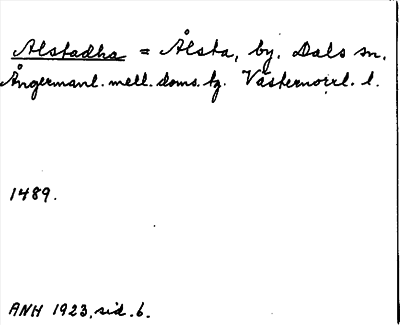 Alstadha = Ålsta, by. Dals sn.
Ångermanl. mell. doms. tg. Västernorrl. l.
1489.
ANH 1923, sid. 6.